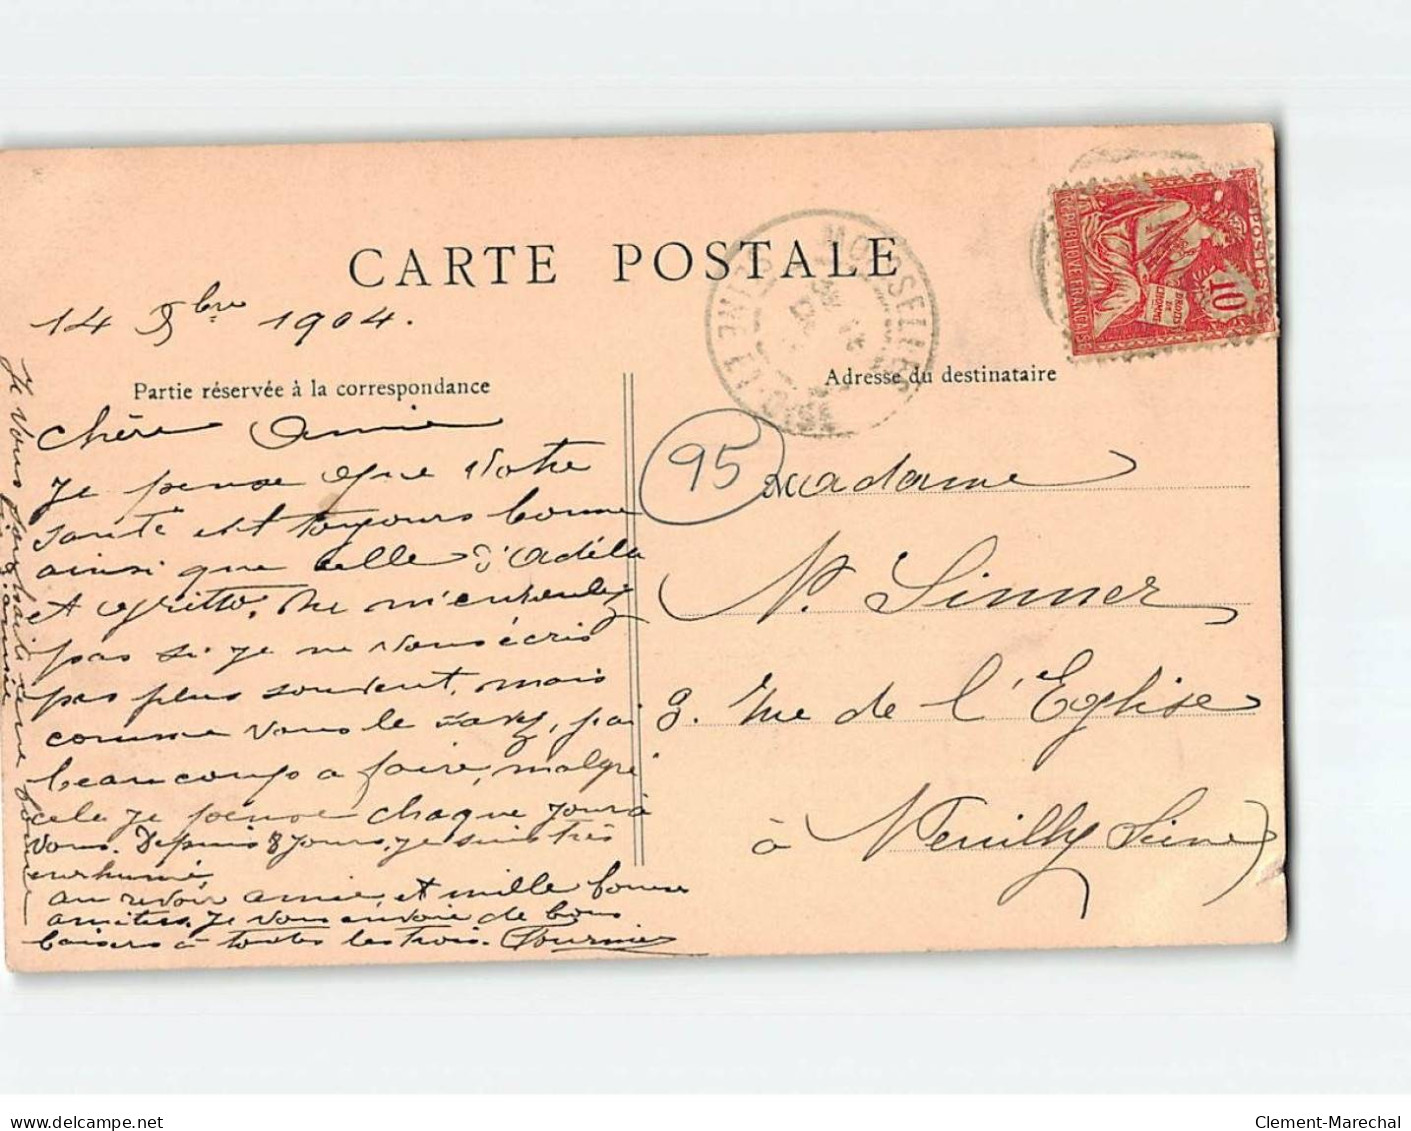 CARTE POSTALE
14 9bre 1904.
Partie réservée à la correspondance
Chère Amie
Je pense que votre
santé est toujours bonne
ainsi que celle d'Adéla
et Gritto, ne m'en voulez
pas si je ne vous écris
pas plus souvent, mais
comme vous le savez, j'ai
beaucoup a faire, malgré
cela je pense chaque jour à
vous. Depuis 8 jours, je suis très
enrhumé
au revoir amie, et mille bonnes
amitiés, je vous envoie de bons
baisers à toutes les trois. Fournier
Je vous souhaite une bonne
MOISSELLES
SEINE ET OISE
RÉPUBLIQUE FRANÇAISE
POSTES
DROITS DE L'HOMME
10
Adresse du destinataire
95
Madame
N. Sinner
9. Rue de l'Eglise
à Neuilly (Seine)
www.delcampe.net
Clement-Marechal